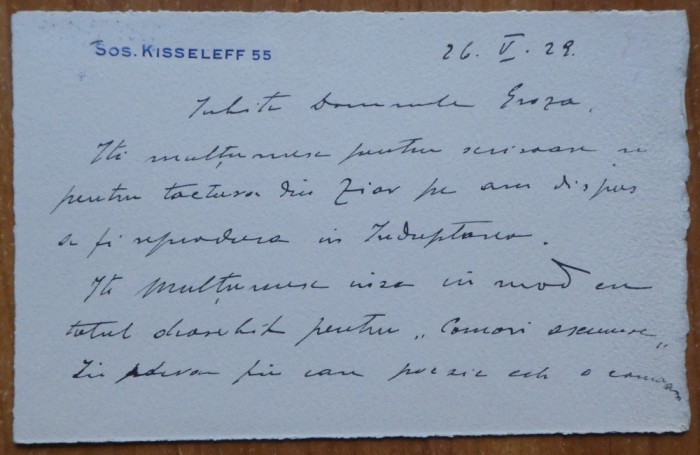 Sos. Kisseleff 55
26. V. 29.
Iubite Domnule Groza,
Iti mulțumesc pentru scrisoare si
pentru din Ziar pe am dispus
a fi reprodusa in Indreptarea.
Iti mulțumesc insa in mod cu
totul deosebit pentru „Comori ascunse”
In adevar fie care poezie este o comoara